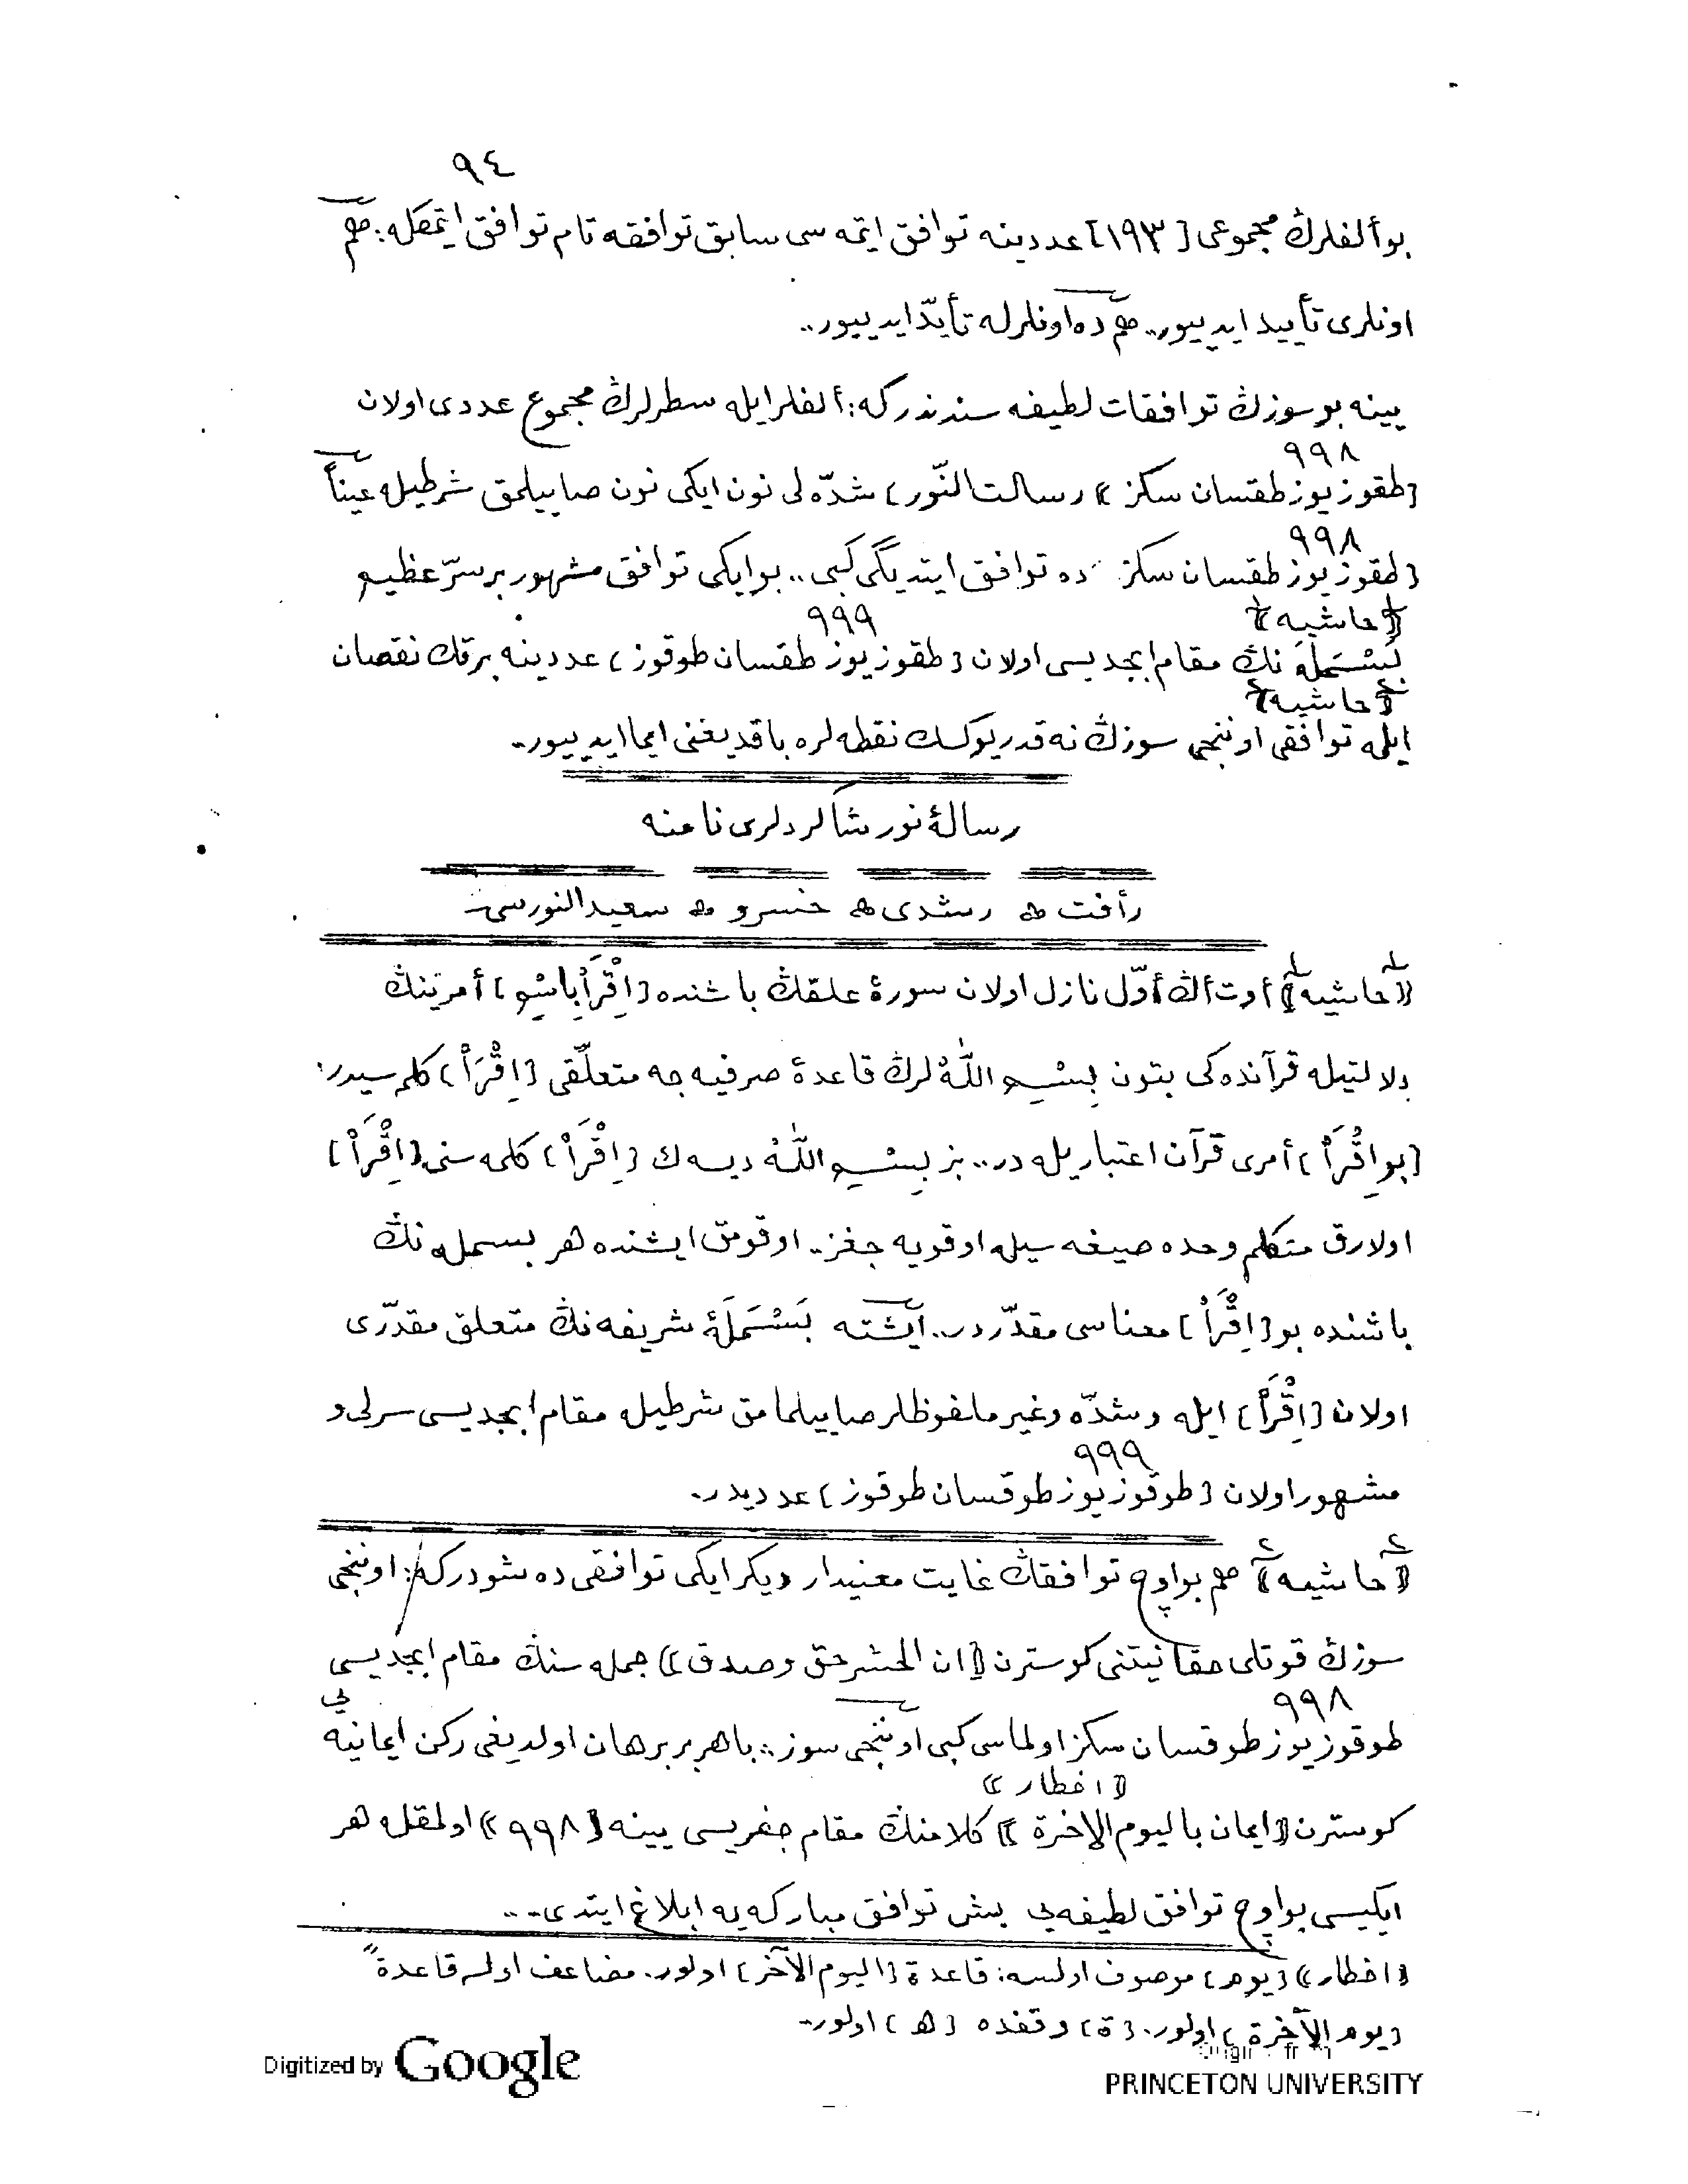 ٩٤
بو ألفلرڭ مجموعى [١٩٣] عددينه توافق ايتمه سى سابق توافقه تام توافق ايتمكله: هم
اونلرى تأييد ايدييور.. هم ده اونلرله تأيّد ايدييور..
يينه بو سوزڭ توافقات لطيفه سندندركه: ألفلر ايله سطرلرڭ مجموع عددى اولان
٩٩٨
[طقوز يوز طقسان سكز] رسالت النّور] شدّه لى نون ايكى نون صاييلمق شرطيله عيناً
٩٩٨
[طقوز يوز طقسان سكز ده توافق ايتديگى كبى.. بو ايكى توافق مشهور بر سرّ عظيم
[حاشيه] ٩٩٩
بَسْمَلَه نڭ مقام ابجديسى اولان [طقوز يوز طقسان طوقوز] عددينه برتك نقصان
[حاشيه]
ايله توافقى اوننجى سوزڭ نه قدر يوكسك نقطه لره باقديغنى ايما ايدييور..
رسالۀ نور شاكردلرى نامنه
رأفت ﻫ رشدى ﻫ خسرو ﻫ سعيد النورسى
[حاشيه] أوت أڭ أوّل نازل اولان سورۀ علقڭ باشنده [اِقْرَأْ بِاسْمِ] أمرينڭ
دلالتيله قرآنده كى بتون بِسْمِ اللّٰهْ لرڭ قاعدۀ صرفيه جه متعلّقى [اِقْرَأْ] كلمه سيدر:
[بو اِقْرَأْ] أمرى قرآن اعتباريله در.. بز بِسْمِ اللّٰهْ ديسه ك [اِقْرَأْ] كلمه سنى [اِقْرَأْ]
اولارق متكلم وحده صيغه سيله اوقويه جغز.. اوقومق ايشنده هر بسمله نڭ
باشنده بو [اِقْرَأْ] معناسى مقدّردر.. ايشته بَسْمَلَۀ شريفه نڭ متعلق مقدّرى
اولان [اِقْرَأْ] ايله و شدّه و غير ملفوظلر صاييلمامق شرطيله مقام ابجديسى سرلى و
٩٩٩
مشهور اولان [طوقوز يوز طوقسان طوقوز] عدديدر.
[حاشيه] هم بو اوچ توافقڭ غايت معنيدار ديكر ايكى توافقى ده شودركه: اوننجى
سوزڭ قوتلى حقانيتنى كوسترن [ان الحشر حق وصدق] جمله سنڭ مقام ابجديسى
٩٩٨
طوقوز يوز طوقسان سكز اولماسى كبى اوننجى سوز.. باهر بر برهان اولديغى ركن ايمانيه يى
[اخطار]
كوسترن [ايمان باليوم الاخرة] كلامنڭ مقام جفريسى يينه [٩٩٨] اولمقله هر
ايكيسى بو اوچ توافق لطيفه يى بش توافق مباركه يه ابلاغ ايتدى..
[اخطار] [يوم] موصوف اولسه: قاعدة [اليوم الآخر] اولور. مضاعف اولسه قاعدةً
[يوم الآخرة] اولور. [ة] وقفده [ه] اولور..
Digitized by Google
PRINCETON UNIVERSITY